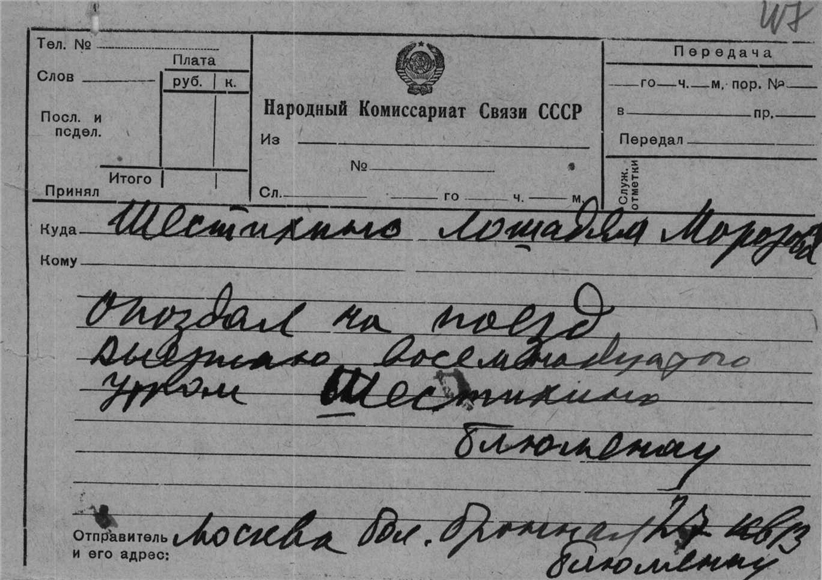 Тел. №
Слов
Посл. и
псдел.
Принял
Плата
руб. к.
Итого
Народный Комиссариат Связи СССР
Из
№
Сл. го ч. м.
Передача
го ч. м. пор. №
в пр.
Передал
Служ.
отметки
Куда Шестихино лошадям Морозова
Кому
опоздал на поезд
выезжаю восемнадцатого
утром Шестихино
блюменау
Отправитель Москва бол. бронная 27 кв 13
и его адрес: блюменау